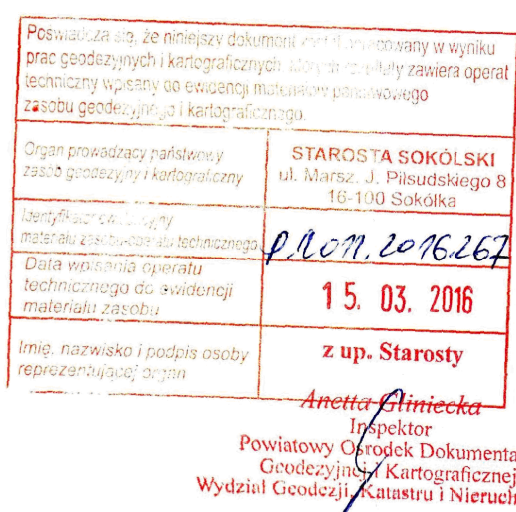 Poświadcza się, że niniejszy dokument został opracowany w wyniku
prac geodezyjnych i kartograficznych, których rezultaty zawiera operat
techniczny wpisany do ewidencji materiałów państwowego
zasobu geodezyjnego i kartograficznego.
Organ prowadzący państwowy
zasób geodezyjny i kartograficzny
STAROSTA SOKÓLSKI
ul. Marsz. J. Piłsudskiego 8
16-100 Sokółka
Identyfikator ewidencyjny
materiału zasobu-operatu technicznego
P.2011.2016.267
Data wpisania operatu
technicznego do ewidencji
materiału zasobu
15. 03. 2016
Imię, nazwisko i podpis osoby
reprezentującej organ
z up. Starosty
Anetta Gliniecka
Inspektor
Powiatowy Ośrodek Dokumenta
Geodezyjnej i Kartograficznej
Wydział Geodezji, Katastru i Nieruch